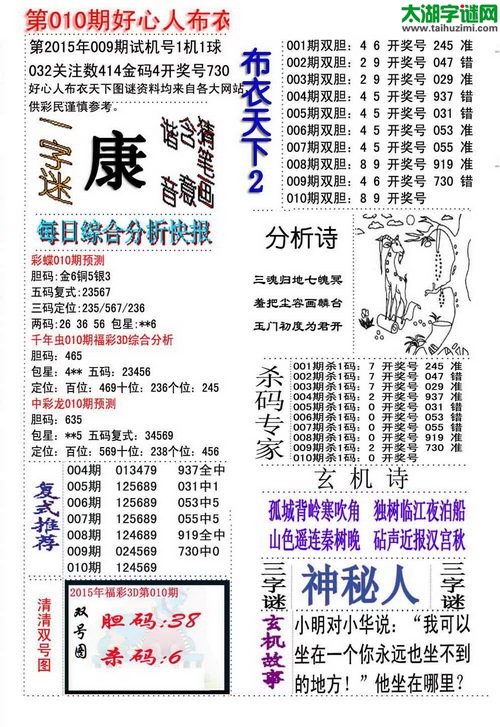 太湖字谜网
www.taihuzimi.com
第010期好心人布衣
第2015年009期试机号1机1球
032关注数414金码4开奖号730
好心人布衣天下图谜资料均来自各大网站,
供彩民谨慎参考。
一字迷
康
猜含猪
音意笔
画
每日综合分析快报
彩蝶010期预测
胆码:金6铜5银3
五码复式:23567
三码定位:235/567/236
两码:26 36 56 包星:**6
千年虫010期福彩3D综合分析
胆码: 465
包星: 4** 五码: 23456
定位: 百位: 469十位: 236个位: 245
中彩龙010期预测
胆码: 635
包星: **5 五码: 34569
定位: 百位: 569十位: 238个位: 456
复式推荐
004期 013479 937全中
005期 125689 031中1
006期 125689 053中5
007期 125689 055中5
008期 124689 919全中
009期 024569 730中0
010期 124569
清清双号图
2015年福彩3D第010期
双号图
胆码:38
杀码:6
布衣天下2
001期双胆: 4 6 开奖号 245 准
002期双胆: 2 9 开奖号 047 错
003期双胆: 2 9 开奖号 029 准
004期双胆: 4 6 开奖号 937 错
005期双胆: 4 6 开奖号 031 错
006期双胆: 4 5 开奖号 053 准
007期双胆: 4 5 开奖号 055 准
008期双胆: 8 9 开奖号 919 准
009期双胆: 4 6 开奖号 730 错
010期双胆: 8 9 开奖号
分析诗
三魂归地七魄冥
羞把尘容画麟台
玉门初度为君开
杀码专家
001期杀1码: 7 开奖号 245 准
002期杀1码: 7 开奖号 047 错
003期杀1码: 7 开奖号 029 准
004期杀1码: 2 开奖号 937 准
005期杀1码: 0 开奖号 031 错
006期杀1码: 0 开奖号 053 错
007期杀1码: 0 开奖号 055 错
008期杀1码: 0 开奖号 919 准
009期杀1码: 2 开奖号 730 准
010期杀1码: 0 开奖号
玄机诗
孤城背岭寒吹角 独树临江夜泊船
山色遥连秦树晚 砧声近报汉宫秋
三字谜
神秘人
三字谜
玄机故事
小明对小华说:“我可以
坐在一个你永远也坐不到
的地方!”他坐在哪里?